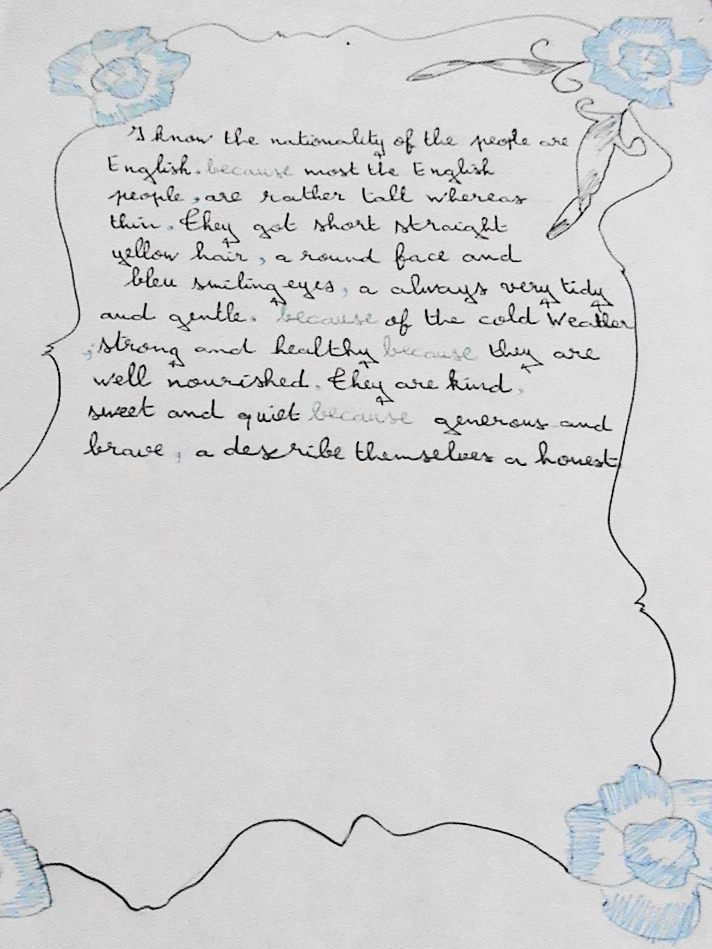 I know the nationality of the people are
English. because most the English
people, are rather tall whereas
thin. they got short straight
yellow hair, a round face and
bleu smiling eyes, a always very tidy
and gentle. because of the cold weather
, strong and healthy because they are
well nourished. they are kind,
sweet and quiet because generous and
brave, a describe themselves a honest.